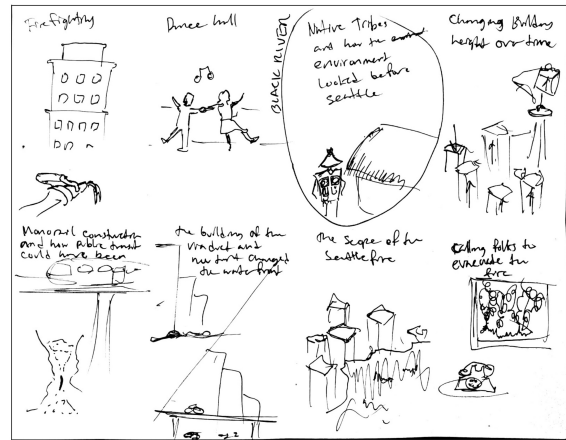 Firefighting
Dance hall
BLACK RIVER
Native Tribes
and how the
environment
looked before
seattle
Changing Building
height over time
Monorail construction
and how public transit
could have been
the building of the
viaduct and
how that changed
the waterfront
The scope of the
Seattle fire
calling folks to
evacuate the
fire